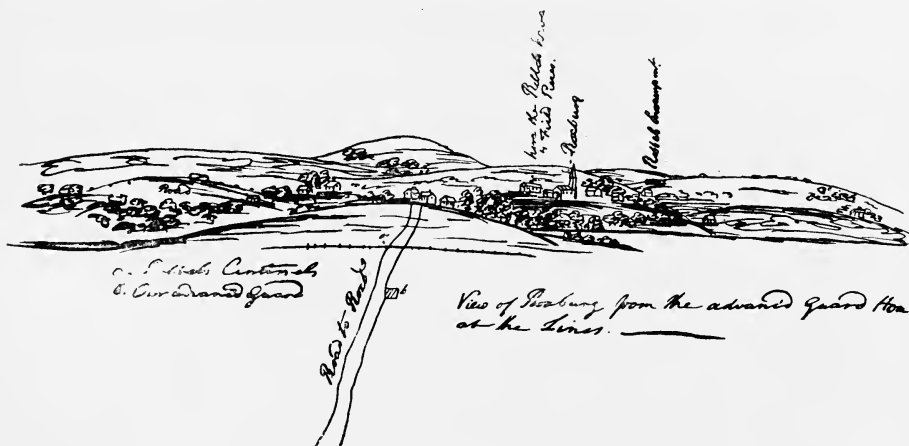 here the Rebels have
4 Field Pieces.
Roxburg
Rebels
Road
a. Rebels Centinels
b. Our advanced Guard
a
b
Road to
View of Roxburg from the advanced Guard Hou
at the Lines.